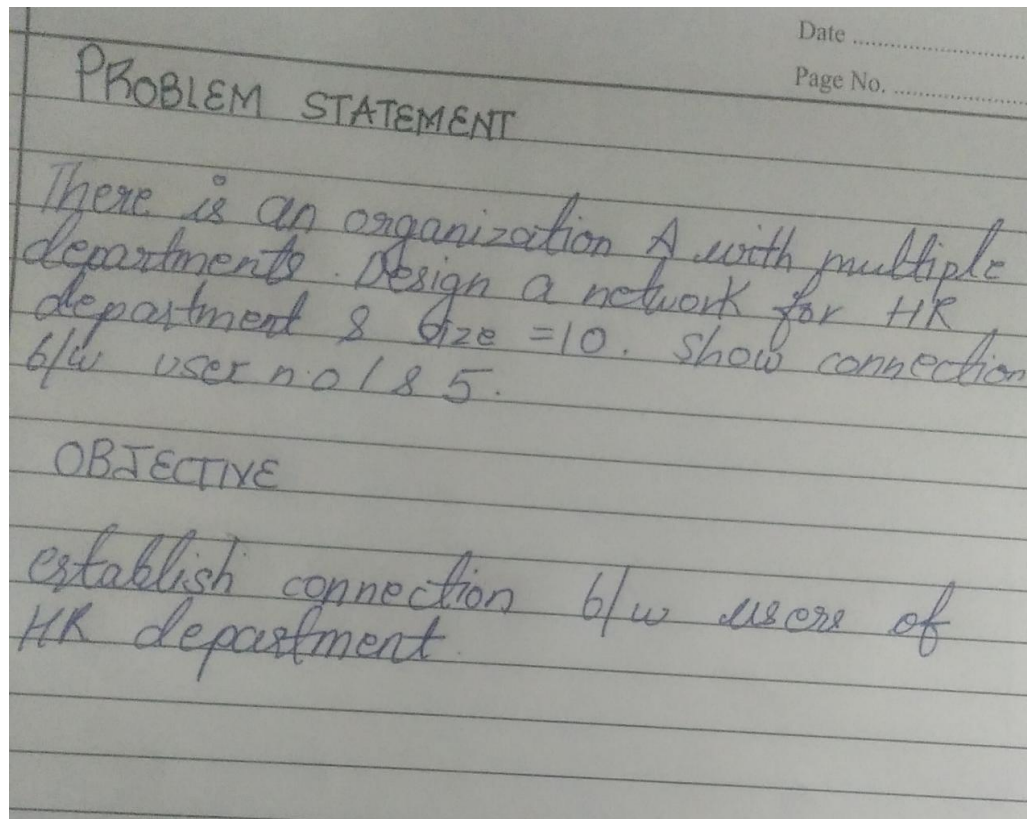 Date
Page No.
PROBLEM STATEMENT
There is an organization A with multiple
departments. Design a network for HR
department & size =10. Show connection
b/w user no 1 & 5.
OBJECTIVE
establish connection b/w users of
HR department.